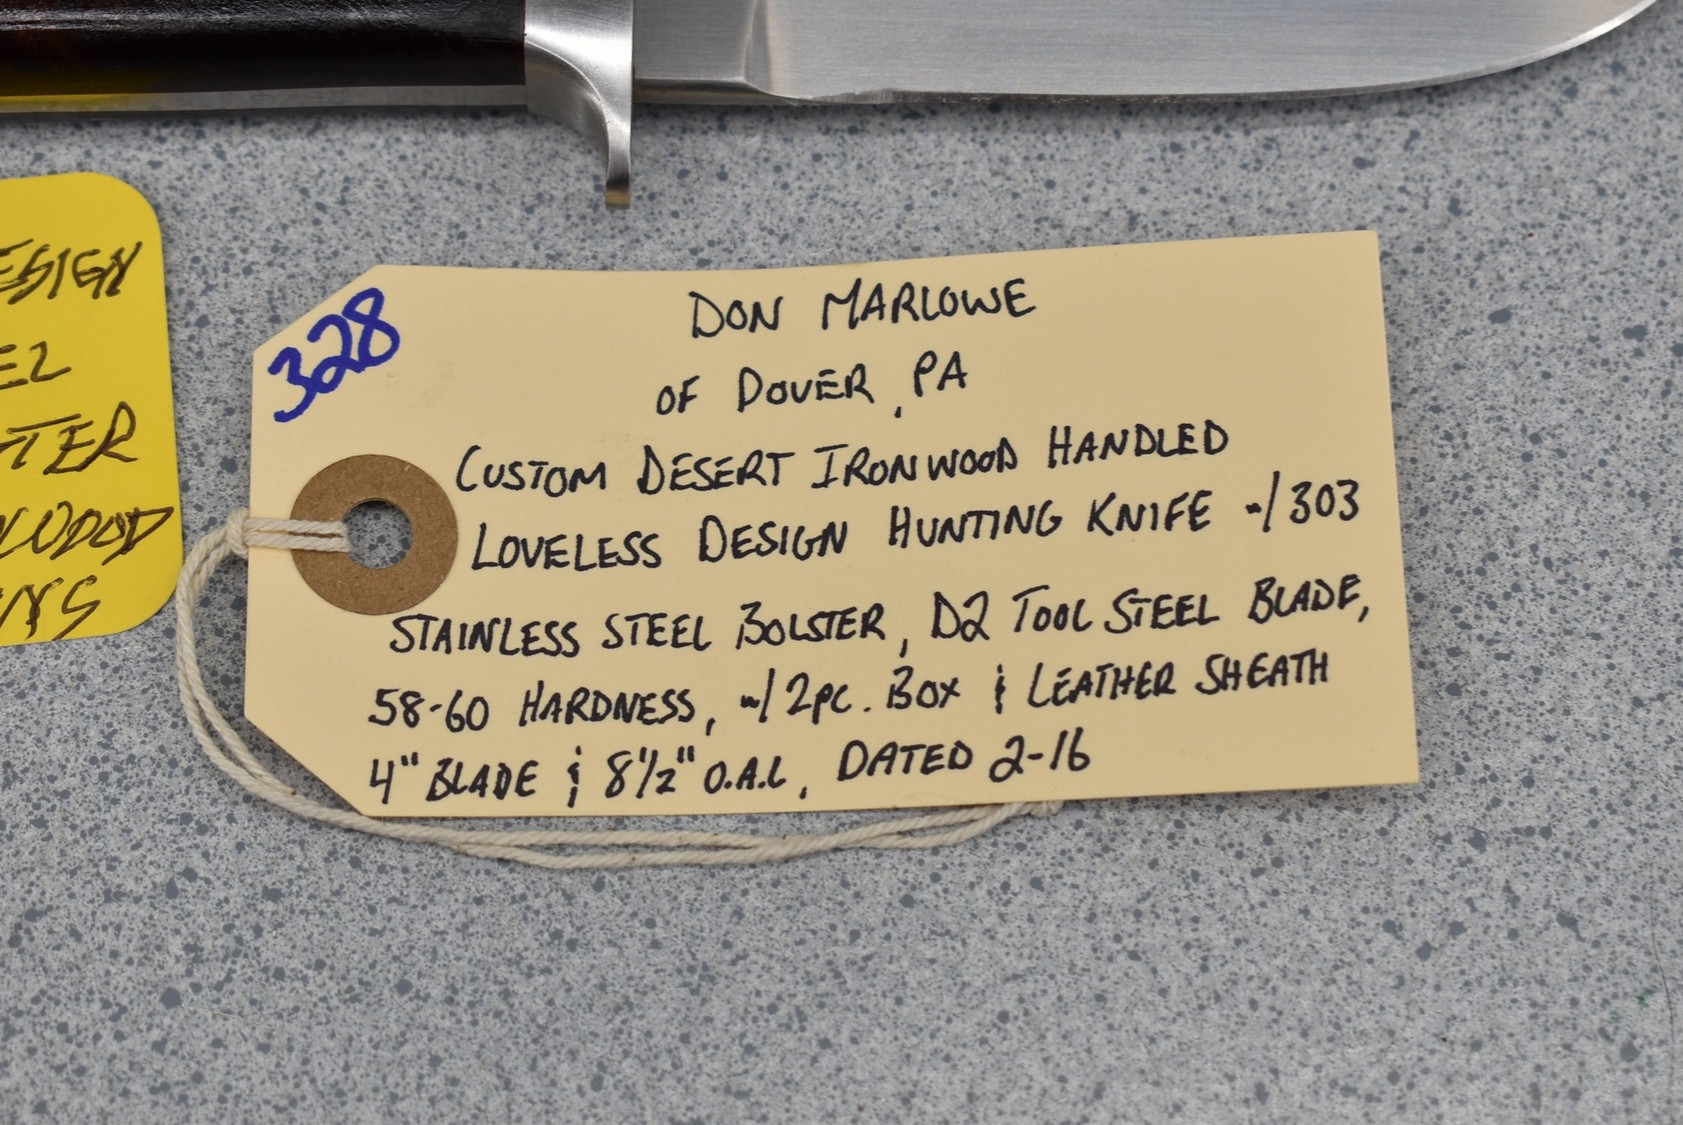 ESIGN
EL
TER
WOOD
328
DON MARLOWE
OF DOVER, PA
CUSTOM DESERT IRONWOOD HANDLED
LOVELESS DESIGN HUNTING KNIFE w/303
STAINLESS STEEL BOLSTER, D2 TOOL STEEL BLADE,
58-60 HARDNESS, w/2PC. BOX & LEATHER SHEATH
4" BLADE & 8½" O.A.L, DATED 2-16